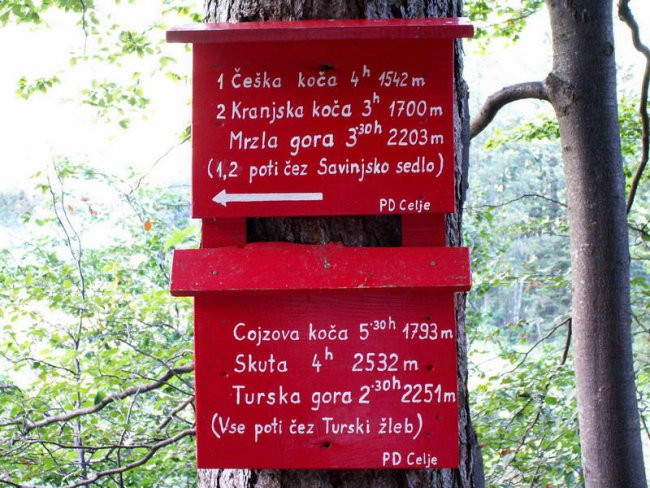 1 Češka koča 4h 1542 m
2 Kranjska koča 3h 1700 m
Mrzla gora 3·30h 2203 m
(1,2 poti čez Savinjsko sedlo)
PD Celje
Cojzova koča 5·30h 1793 m
Skuta 4h 2532 m
Turska gora 2·30h 2251 m
(Vse poti čez Turski žleb)
PD Celje